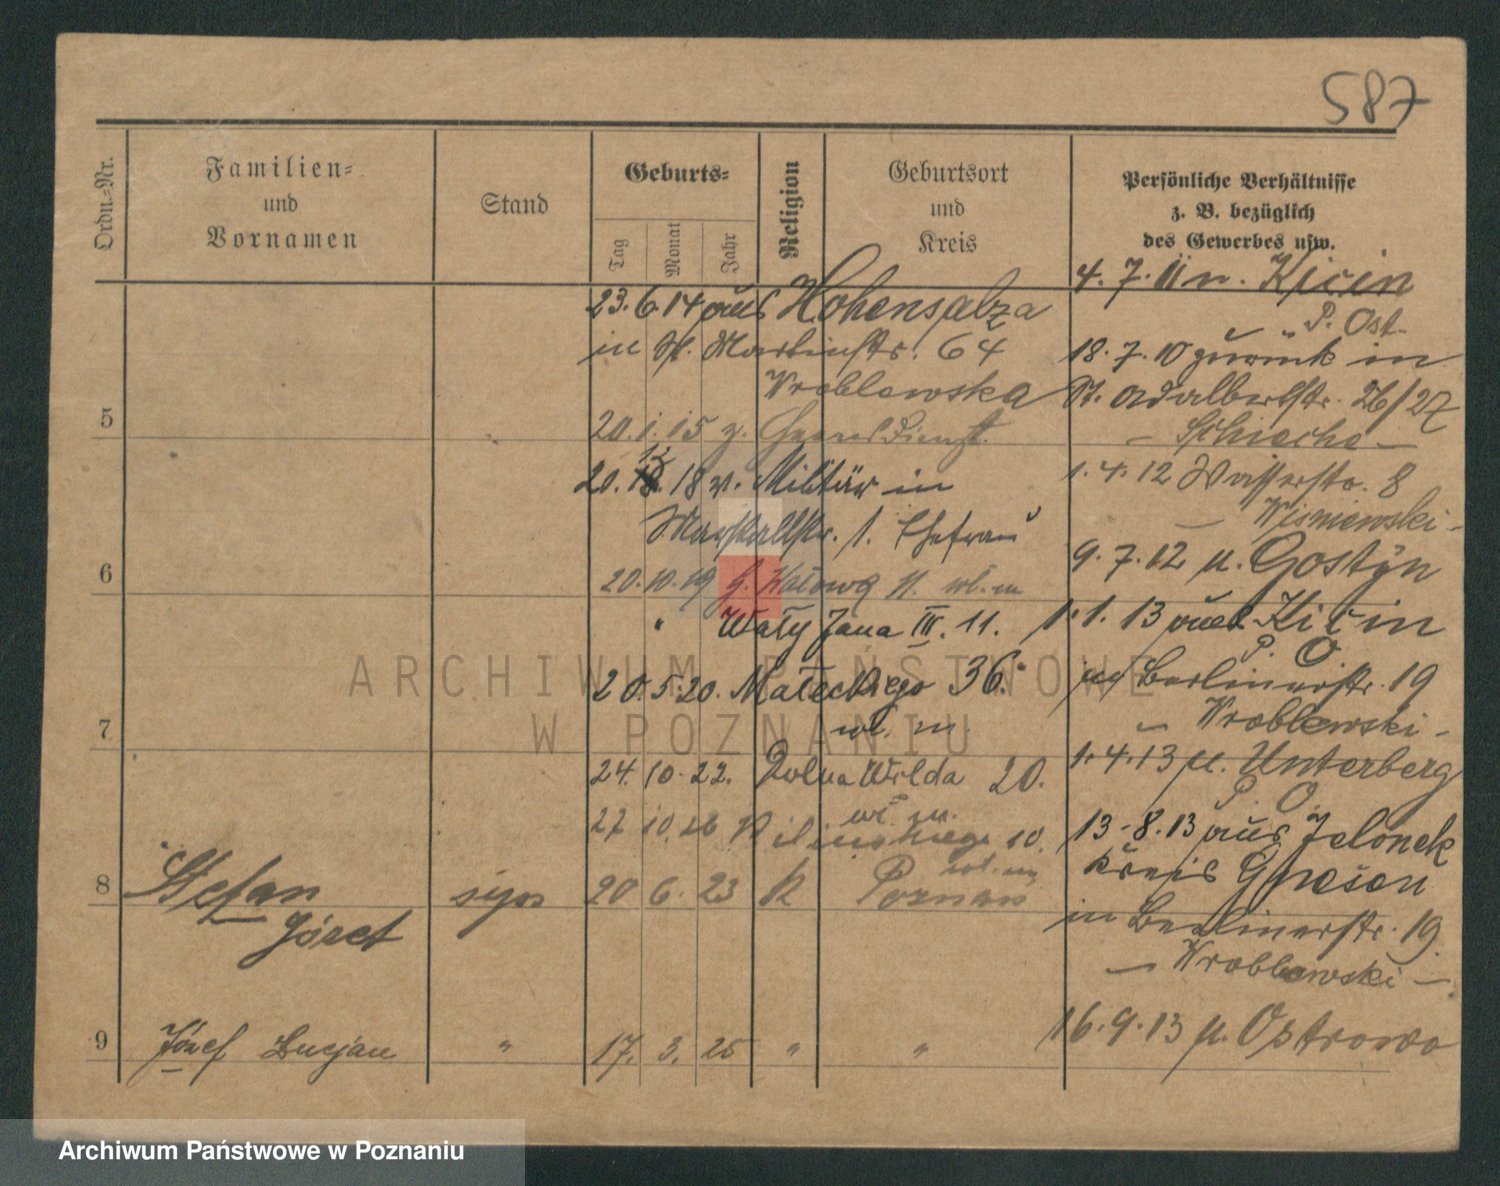 587
Ordn.-Nr.
Familien-
und
Vornamen
Stand
Geburts-
Tag
Monat
Jahr
Religion
Geburtsort
und
Kreis
Persönliche Verhältnisse
z. B. bezüglich
des Gewerbes usw.
23.6.14 aus Hohensalza
in St. Martinstr. 64
Wroblewska
5
20.1.15 z. Dienst
20. 12. 18 v. Militär in
1. Ehefrau
6
20.10.19 G. Wałowa 11. wł. m
" Wały Jana III. 11.
20.5.20. Małeckiego 36.
wł. m.
7
24.10.22. Dolna Wilda 20.
wł. m.
27 10.26 Kilinskiego 10.
wł. m
8 Stefan syn 20 6. 23 k Poznań
Józef
9 Józef Lucjan " 17. 3. 25 " "
4. 7. 11 n. Kicin
P. Ost.
18. 7. 10 zurück in
St. Adalbertstr. 26/27
1. 4. 12 Wasserstr. 8
Wismewski -
9. 7. 12 n. Gostyn
1. 1. 13 aus Kicin
P. O
in Berlinerstr. 19
- Wroblewski -
1. 4. 13 n. Unterberg
P. O.
13. 8. 13 aus Jelonek
Kreis Gnesen
in Berlinerstr. 19.
- Wroblewski -
16. 9. 13 n. Ostrowo
ARCHIWUM PAŃSTWOWE
W POZNANIU
Archiwum Państwowe w Poznaniu